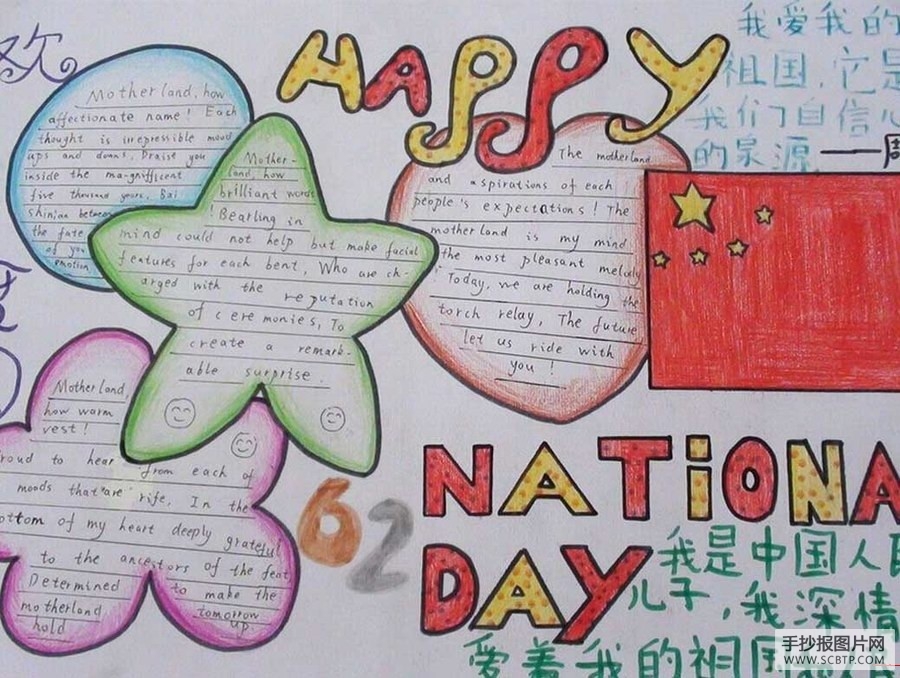 HAPPY
我爱我的
祖国,它是
我们自信心
的泉源——周
欢
度
Motherland, how
affectionate name! Each
thought is irrepressible mood
ups and downs. Praise you
inside the ma-gnifficent
five thousand years, Bai
shinian between
the fate
of you
emotion
Mother-
land, how
brilliant words
Bearling in
mind could not help but make facial
features for each bent, Who are ch-
arged with the reputation
of ceremonies, To
create a remark-
able surprise.
The motherland
and aspirations of each
people's expectations! The
motherland is my mind
the most pleasant melody
! Today, we are holding the
torch relay, The future
let us ride with
you!
Motherland,
how warm
vest!
roud to hear from each of
moods that are rife, In the
ottom of my heart deeply grateful
to the ancestors of the feat
Determined to make the
motherland tomorrow
hold up
62
NATIONA
DAY
我是中国人民
儿子,我深情
爱着我的祖国
手抄报图片网
WWW.SCBTP.COM